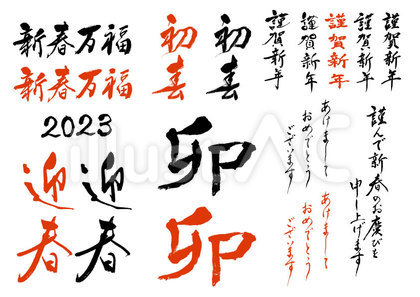 新春万福
新春万福
2023
迎春
迎春
初春
初春
卯
卯
謹賀新年
謹賀新年
謹賀新年
謹賀新年
謹賀新年
あけまして
おめでとう
ございます
あけまして
おめでとう
ございます
謹んで新春のお慶びを
申し上げます
illustAC